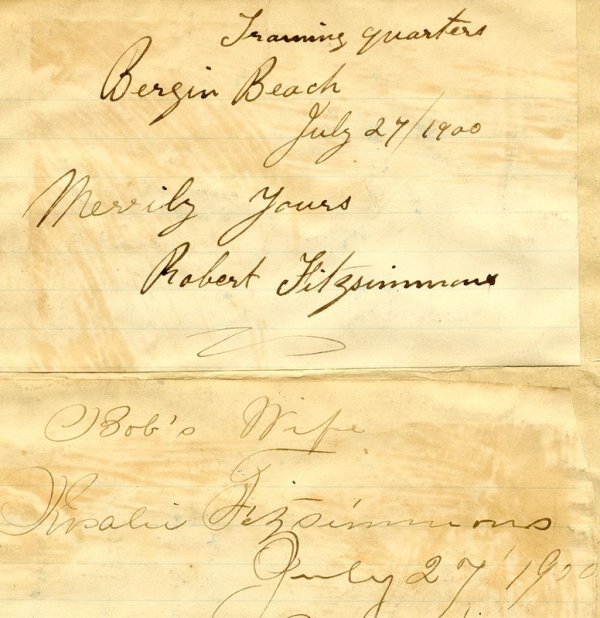 Training quarters
Bergin Beach
July 27/1900
Merrily Yours
Robert Fitzsimmons
Bob's Wife
Rosalie Fitzsimmons
July 27 1900